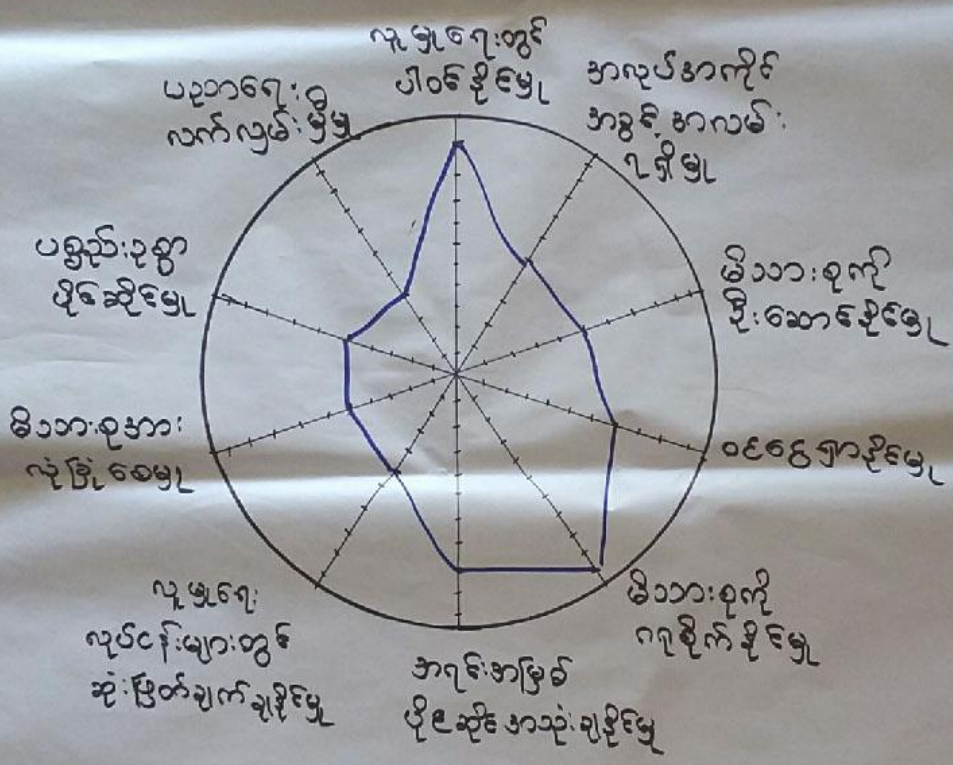 လူမှုရေးတွင်
ပါဝင်နိုင်မှု
အလုပ်အကိုင်
အခွင့်အလမ်း
ရရှိမှု
မိသားစုကို
ဦးဆောင်နိုင်မှု
ဝင်ငွေရှာနိုင်မှု
မိသားစုကို
ဂရုစိုက်နိုင်မှု
အရင်းအမြစ်
ပိုင်ဆိုင်အသုံးချနိုင်မှု
လူမှုရေး
လုပ်ငန်းများတွင်
ဆုံးဖြတ်ချက်ချနိုင်မှု
မိသားစုအား
လုံခြုံစေမှု
ပစ္စည်းဥစ္စာ
ပိုင်ဆိုင်မှု
ပညာရေး
လက်လှမ်းမှီမှု